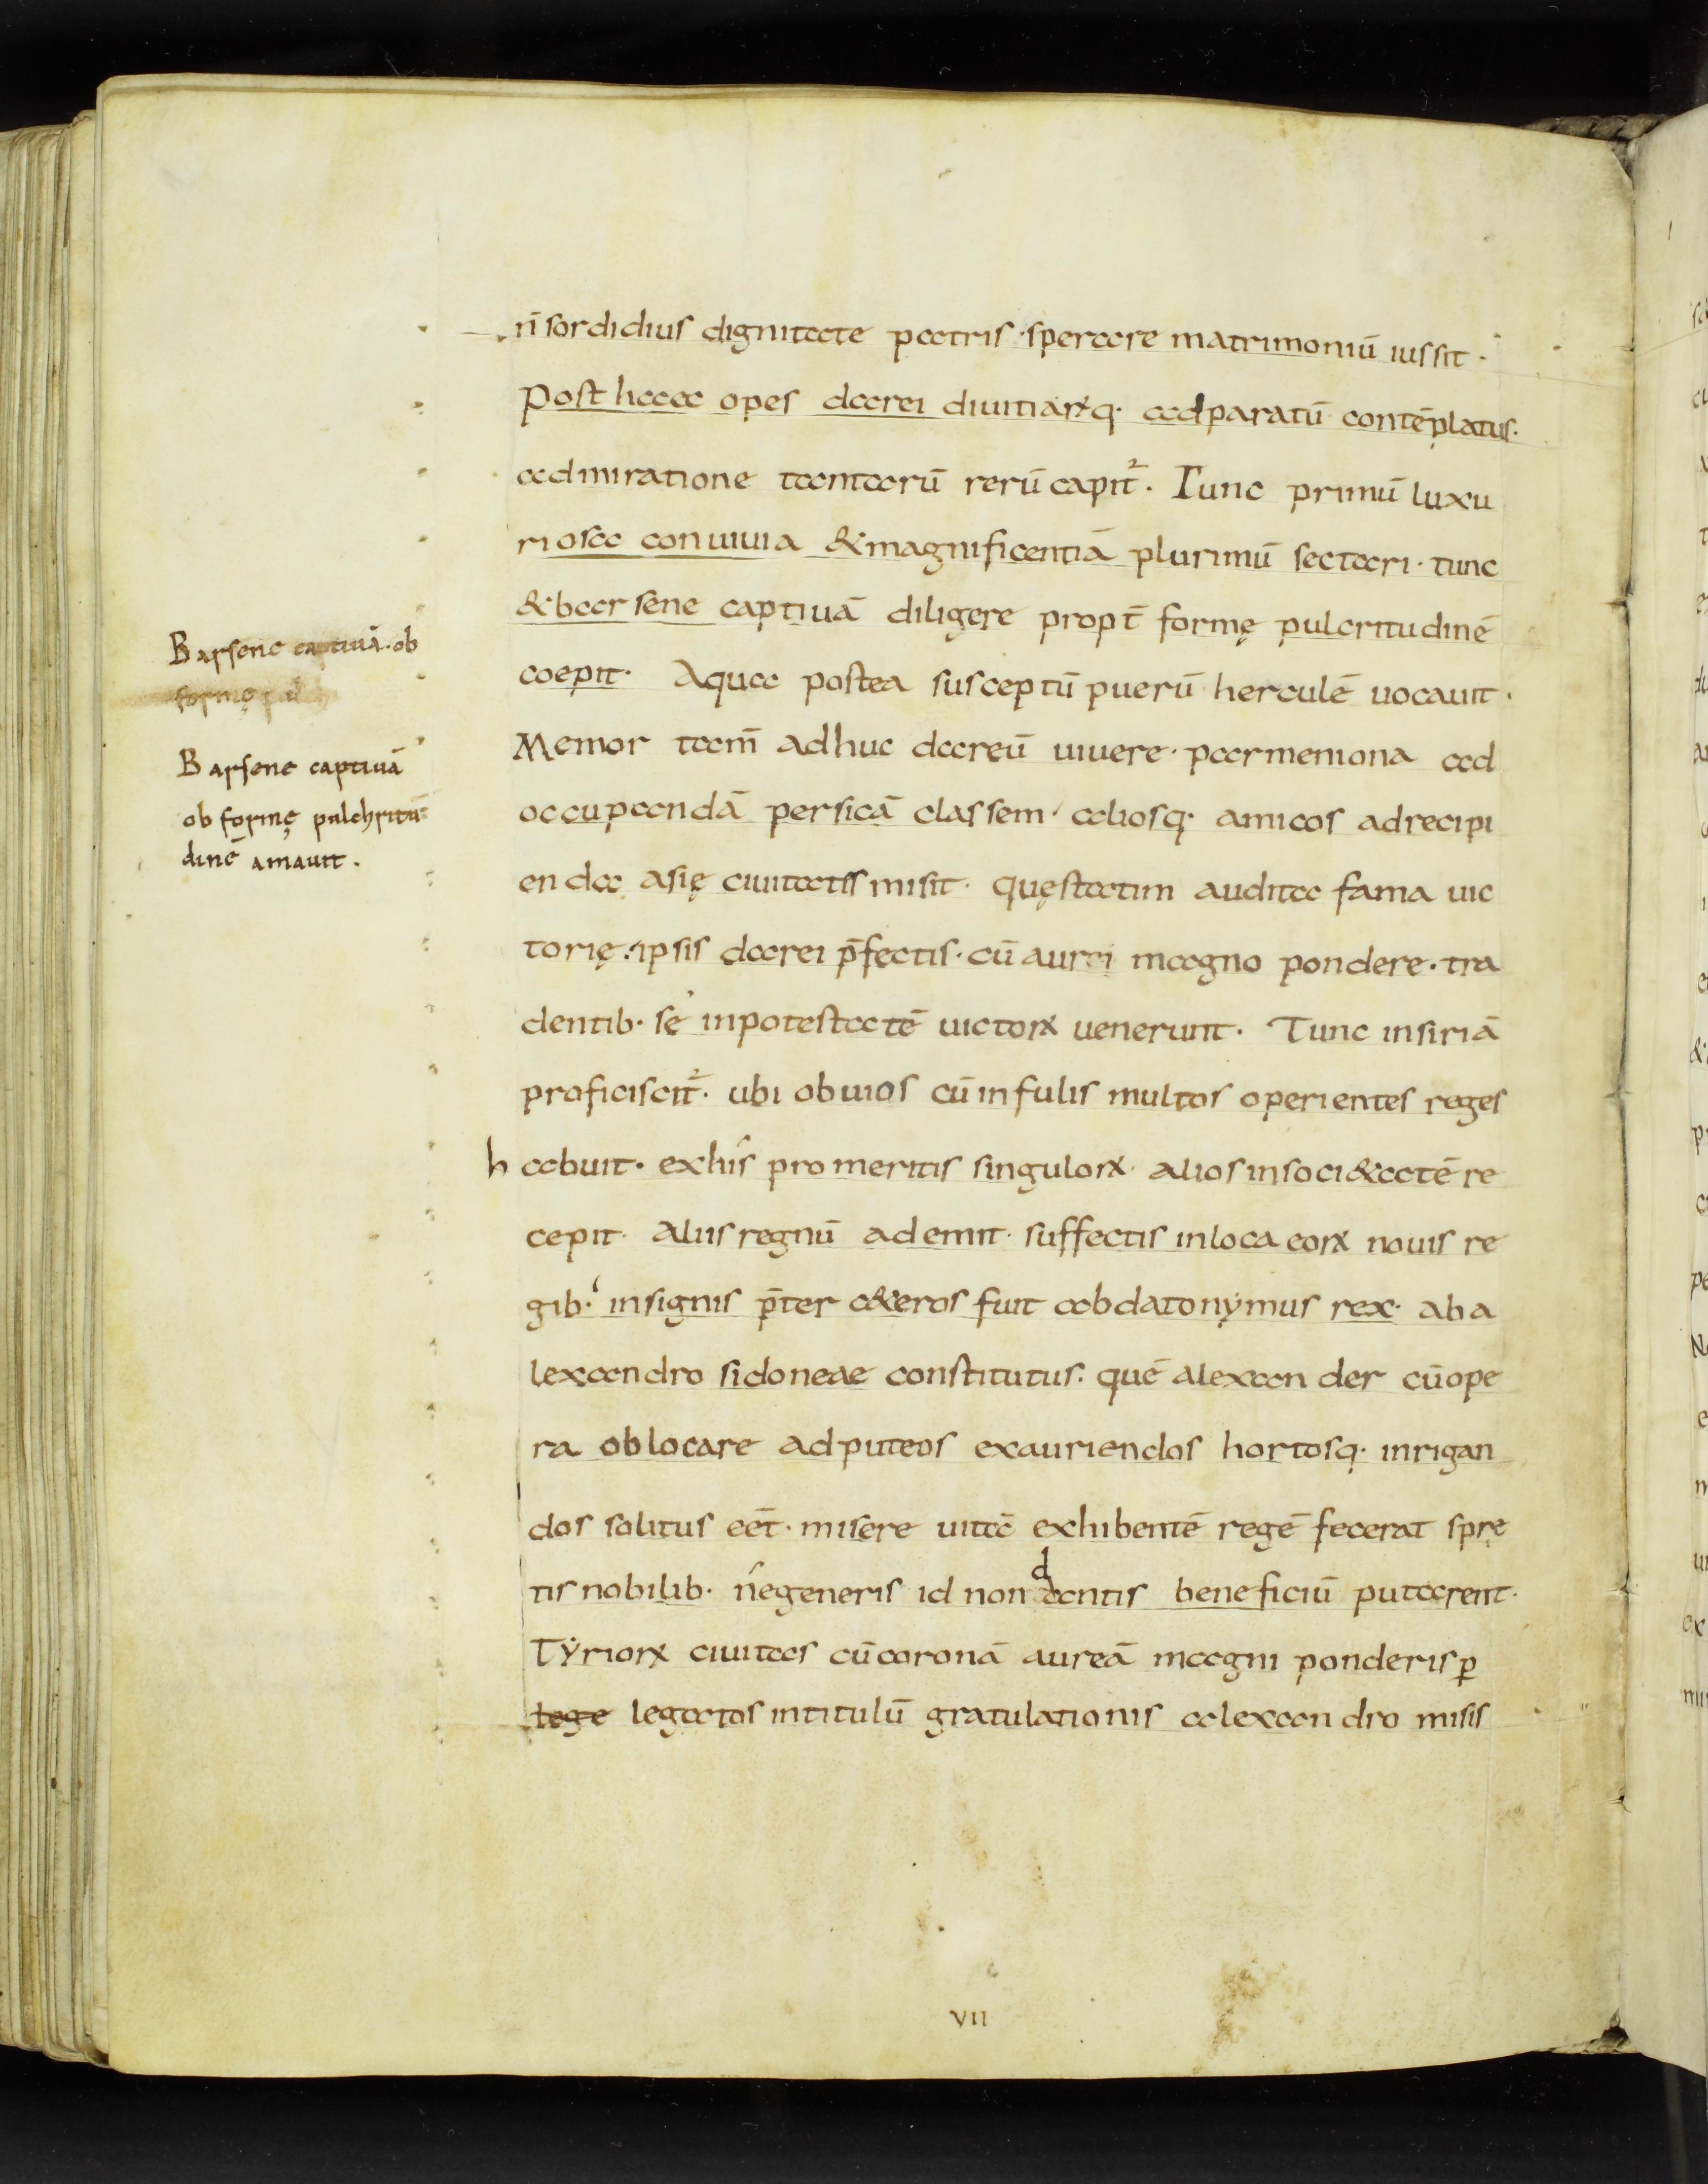 n̄ sordidius dignitate patris · sperare matrimoniū iussit ·
Post haec opes darei diuitiarꝝq· adparatū contēplatus·
admiratione tantarū rerū capit᷑ · Tunc primū luxu
riosa conuiuia & magnificentiā plurimū sectari · tunc
& barsene captiuā diligere propt̄ formę pulcritudinē
coepit · Aqua postea susceptū puerū herculē uocauit ·
Memor tam̄ adhuc dareū uiuere · parmeniona ad
occupandā persicā classem · aliosq· amicos adrecipi
endas asię ciuitatis misit · quęstatim audita fama uic
torię · ipsis darei p̄fectis · cū auri magno pondere · tra
dentib· se inpotestatē uictorꝝ uenerunt · Tunc insiriā
proficiscit᷑ · ubi obuios cū infulis multos operientes reges
habuit · exhis pro meritis singulorꝝ · alios insoci&atē re
cepit · aliis regnū ademit · suffectis inloca eorꝝ nouis re
gib· insignis p̄ter c&eros fuit abdatonẏmus rex · aba
lexandro sidoneae constitutus · quē alexander cū ope
ra oblocare adputeos exauriendos hortosq· inrigan
dos solitus eēt · misere uitā exhibentē regē fecerat spre
tis nobilib· ne generis id non dantis beneficiū putarent ·
Tẏriorꝝ ciuitas cū coronā aureā magni ponderis ꝑ
lege legatos intitulū gratulationis alexandro misis
Barsene captiuā · ob
formę pul
Barsene captiuā
ob formę pulchritu
dinē amauit .
VII